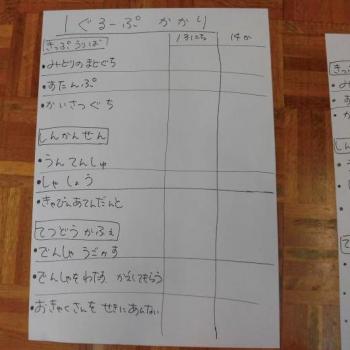 1 ぐるーぷ かかり
13にち 14か
きっぷうりば
・みどりのまどぐち
・すたんぷ
・かいさつぐち
しんかんせん
・うんてんしゅ
・しゃしょう
・きゃびんあてんだんと
てつどうかふぇ
・でんしゃ うごかす
・でんしゃをわたす かえしてもらう
・おきゃくさんを せきにあんない